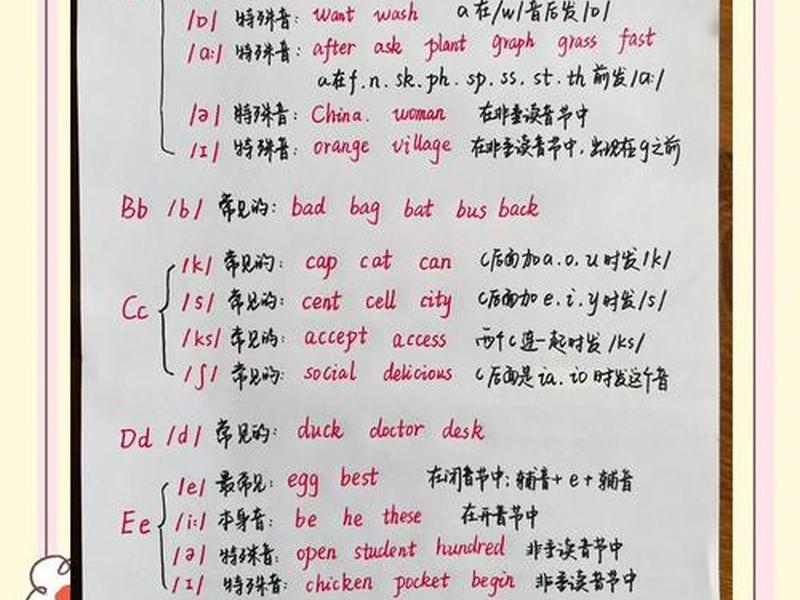 /ɒ/ 特殊音: want wash a在/w/音后发/ɒ/
/ɑ:/ 特殊音: after ask plant graph grass fast
a在f.n.sk.ph.sp.ss.st.th前发/ɑ:/
/ə/ 特殊音: China. woman 在非重读音节中
/ɪ/ 特殊音: orange village 在非重读音节中,出现在g之前
Bb /b/ 常见的: bad bag bat bus back
/k/ 常见的: cap cat can C后面加a.o.u时发/k/
Cc /s/ 常见的: cent cell city C后面加e.i.y时发/s/
/ks/ 常见的: accept access 两个C连一起时发/ks/
/ʃ/ 常见的: social delicious C后面是ia.io时发这个音
Dd /d/ 常见的: duck doctor desk
/e/ 最常见: egg best 在闭音节中; 辅音+e+辅音
Ee /i:/ 本身音: be he these 在开音节中
/ə/ 特殊音: open student hundred 非重读音节中
/ɪ/ 特殊音: chicken pocket begin 非重读音节中